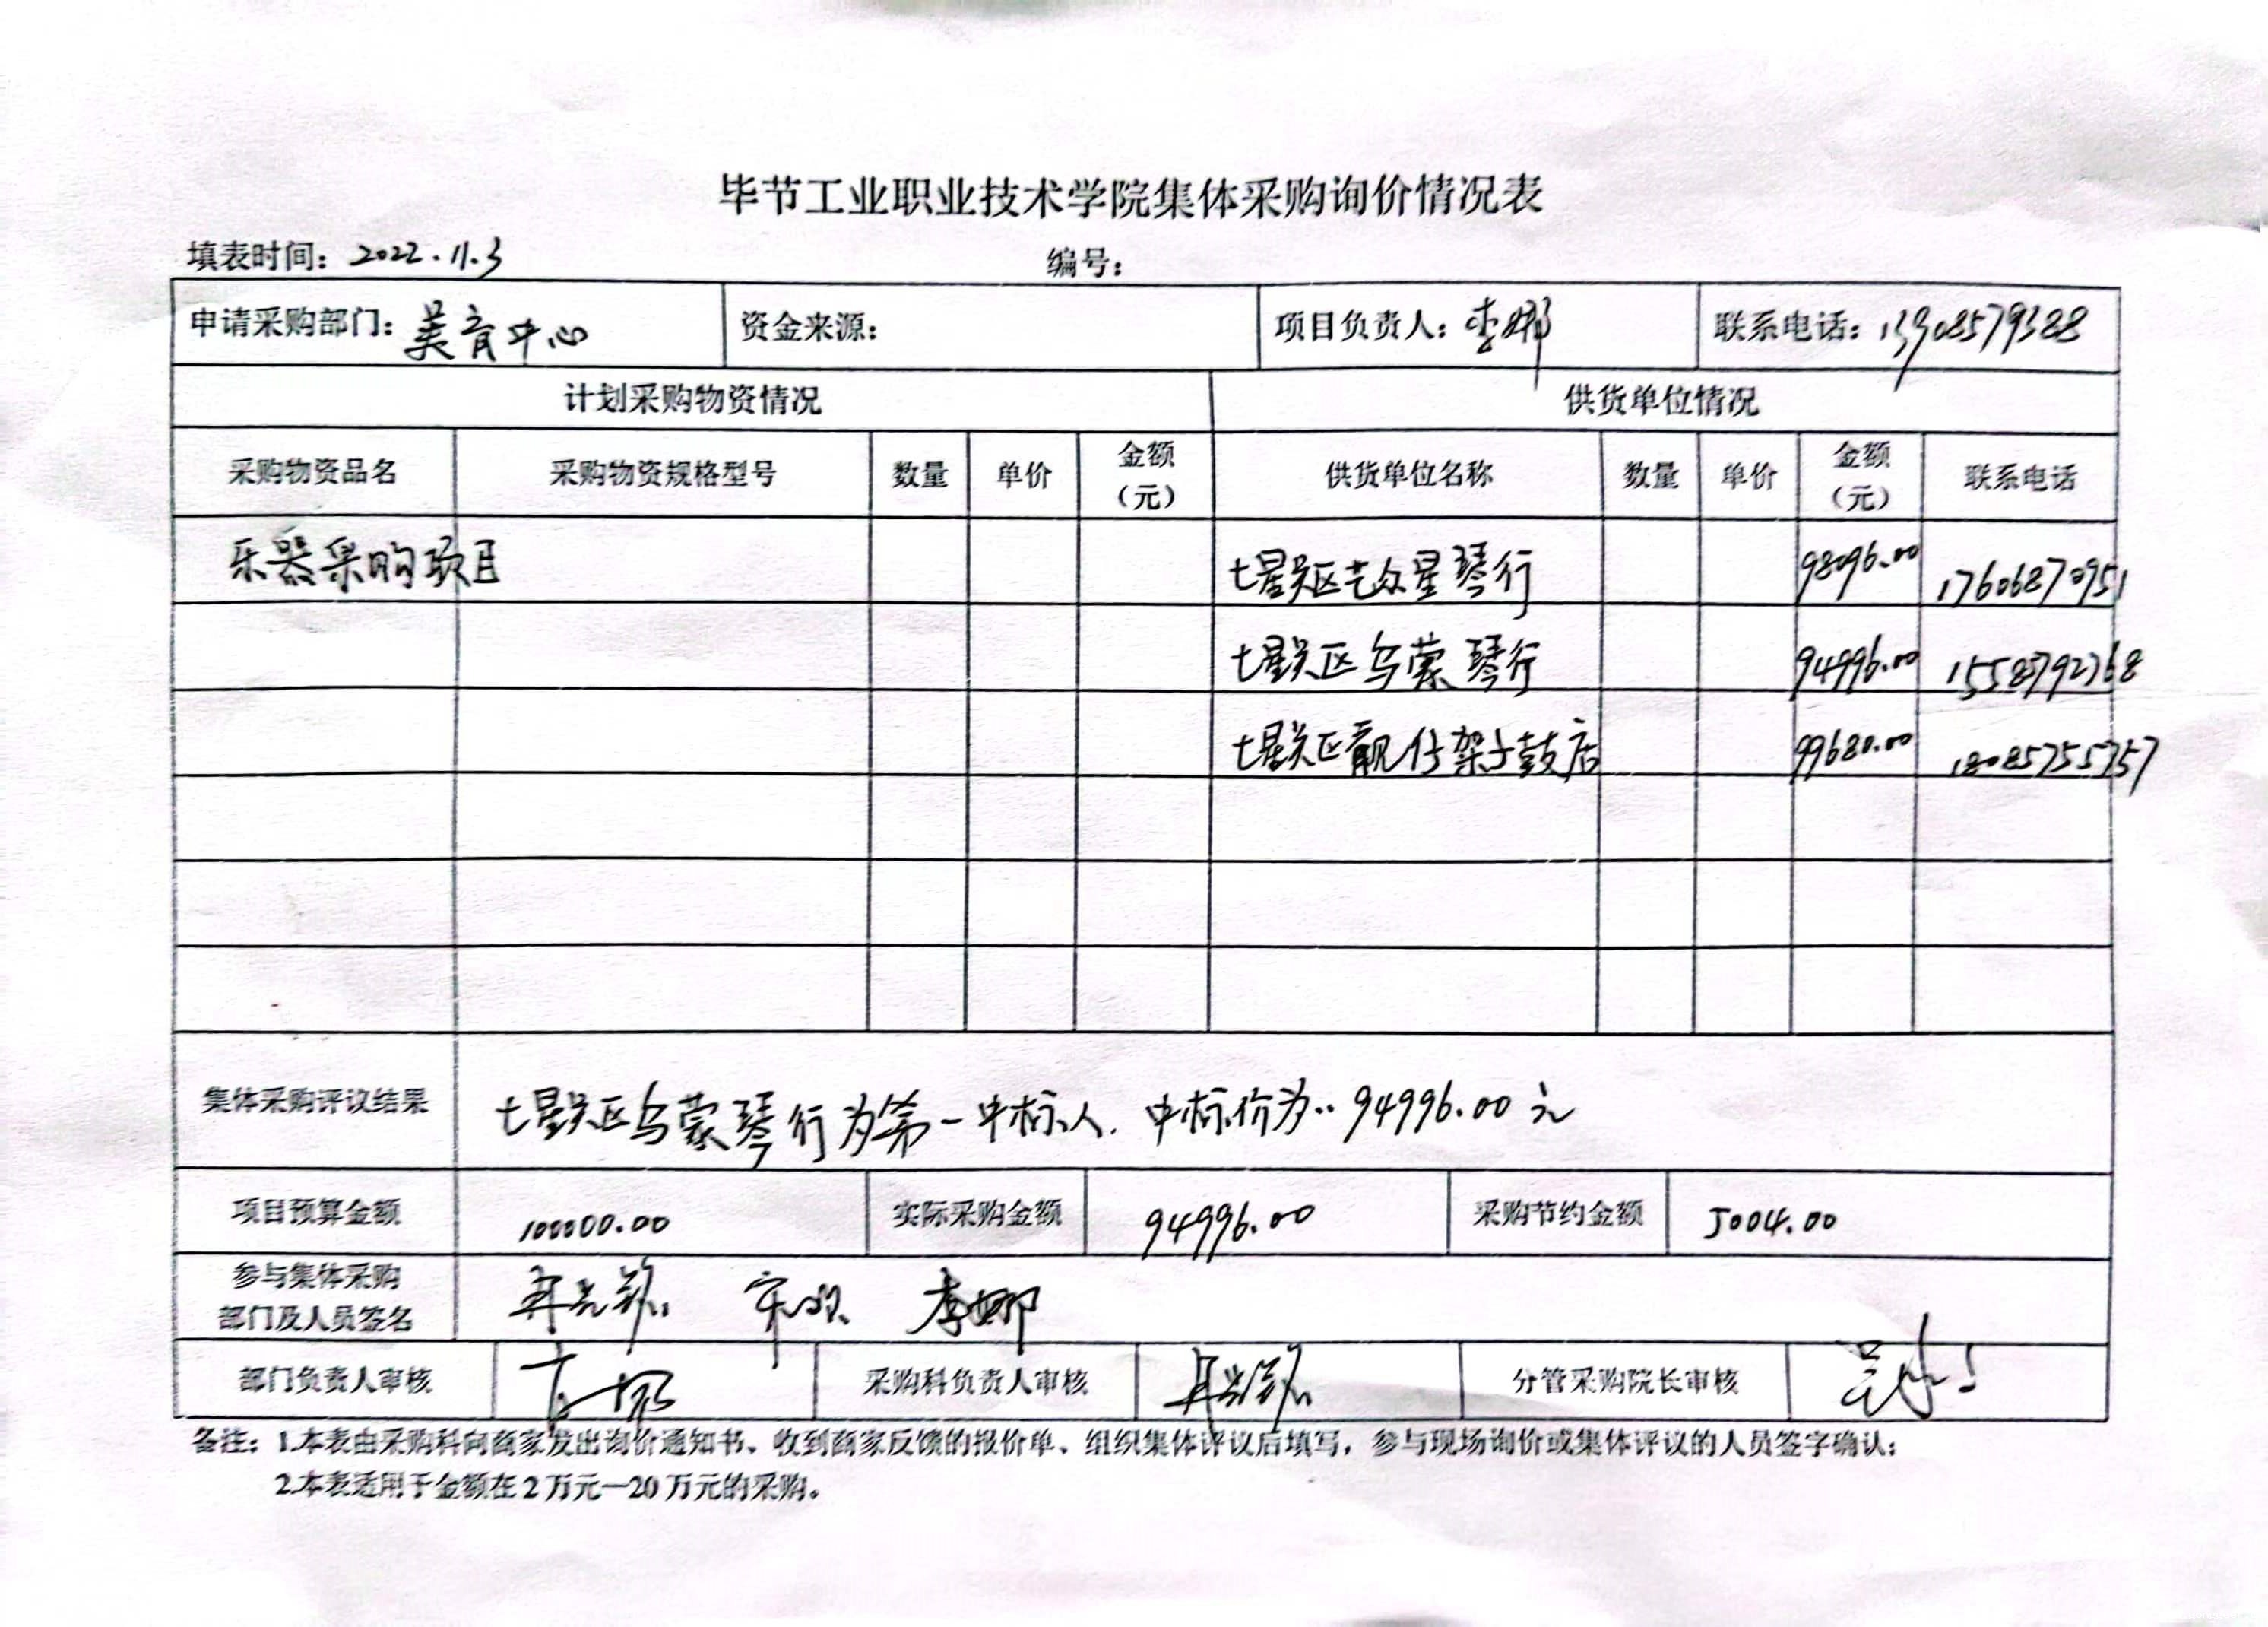 毕节工业职业技术学院集体采购询价情况表
填表时间：2022.11.3 编号：
申请采购部门：美育中心 资金来源： 项目负责人：李娜 联系电话：13908579388
计划采购物资情况 供货单位情况
采购物资品名 采购物资规格型号 数量 单价 金额（元） 供货单位名称 数量 单价 金额（元） 联系电话
乐器采购项目 七星关区艺众星琴行 98096.00 17606870951
七星关区乌蒙琴行 94996.00
七星关区靓仔架子鼓店 99680.00 18085755357
集体采购评议结果 七星关区乌蒙琴行为第一中标人. 中标价为：94996.00元
项目预算金额 100000.00 实际采购金额 94996.00 采购节约金额 5004.00
参与集体采购部门及人员签名 李娜
部门负责人审核 采购科负责人审核 分管采购院长审核
备注：1.本表由采购科向商家发出询价通知书、收到商家反馈的报价单、组织集体评议后填写，参与现场询价或集体评议的人员签字确认；
2.本表适用于金额在2万元—20万元的采购。